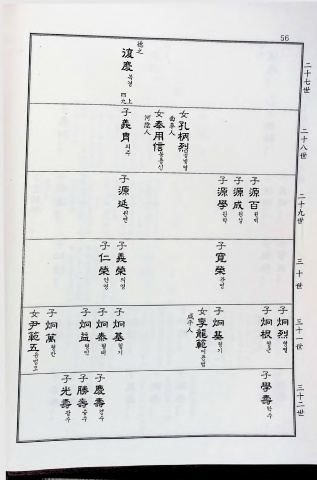 56
二十七世
德之
復慶 복경
四九上
二十八世
女 孔柄烈 공병렬
曲阜人
女 奉用信 봉용신
河陰人
子 義胄 의주
二十九世
子 源百 원백
子 源成 원성
子 源學 원학
子 源延 원연
三十世
子 寬榮 관영
子 義榮 의영
子 仁榮 인영
三十一世
子 炯烈 형렬
子 炯根 형근
女 李龍範 이용범
咸平人
子 炯基 형기
子 炯基 형기
子 炯泰 형태
子 炯益 형익
子 炯萬 형만
女 尹範五 윤범오
三十二世
子 學壽 학수
子 慶壽 경수
子 勝壽 승수
子 光壽 광수